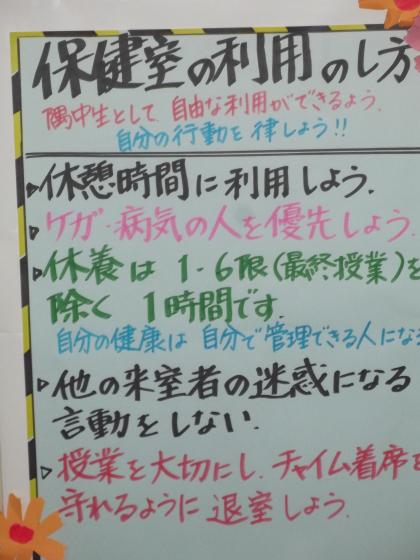 保健室の利用のし方
隅中生として、自由な利用ができるよう、
自分の行動を律しよう!!
▷休憩時間に利用しよう.
▷ケガ・病気の人を優先しよう.
▷休養は1-6限(最終授業)を
除く1時間です.
自分の健康は自分で管理できる人になる
▷他の来室者の迷惑になる
言動をしない.
▷授業を大切にし、チャイム着席を
守れるように退室しよう.